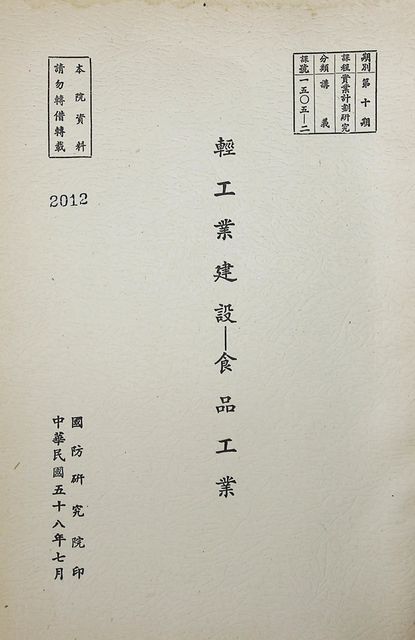 期別 第十期
課程 實業計劃研究
分類 講義
課號 一五〇五—二
輕工業建設—食品工業
本院資料
請勿轉借轉載
2012
國防研究院印
中華民國五十八年七月